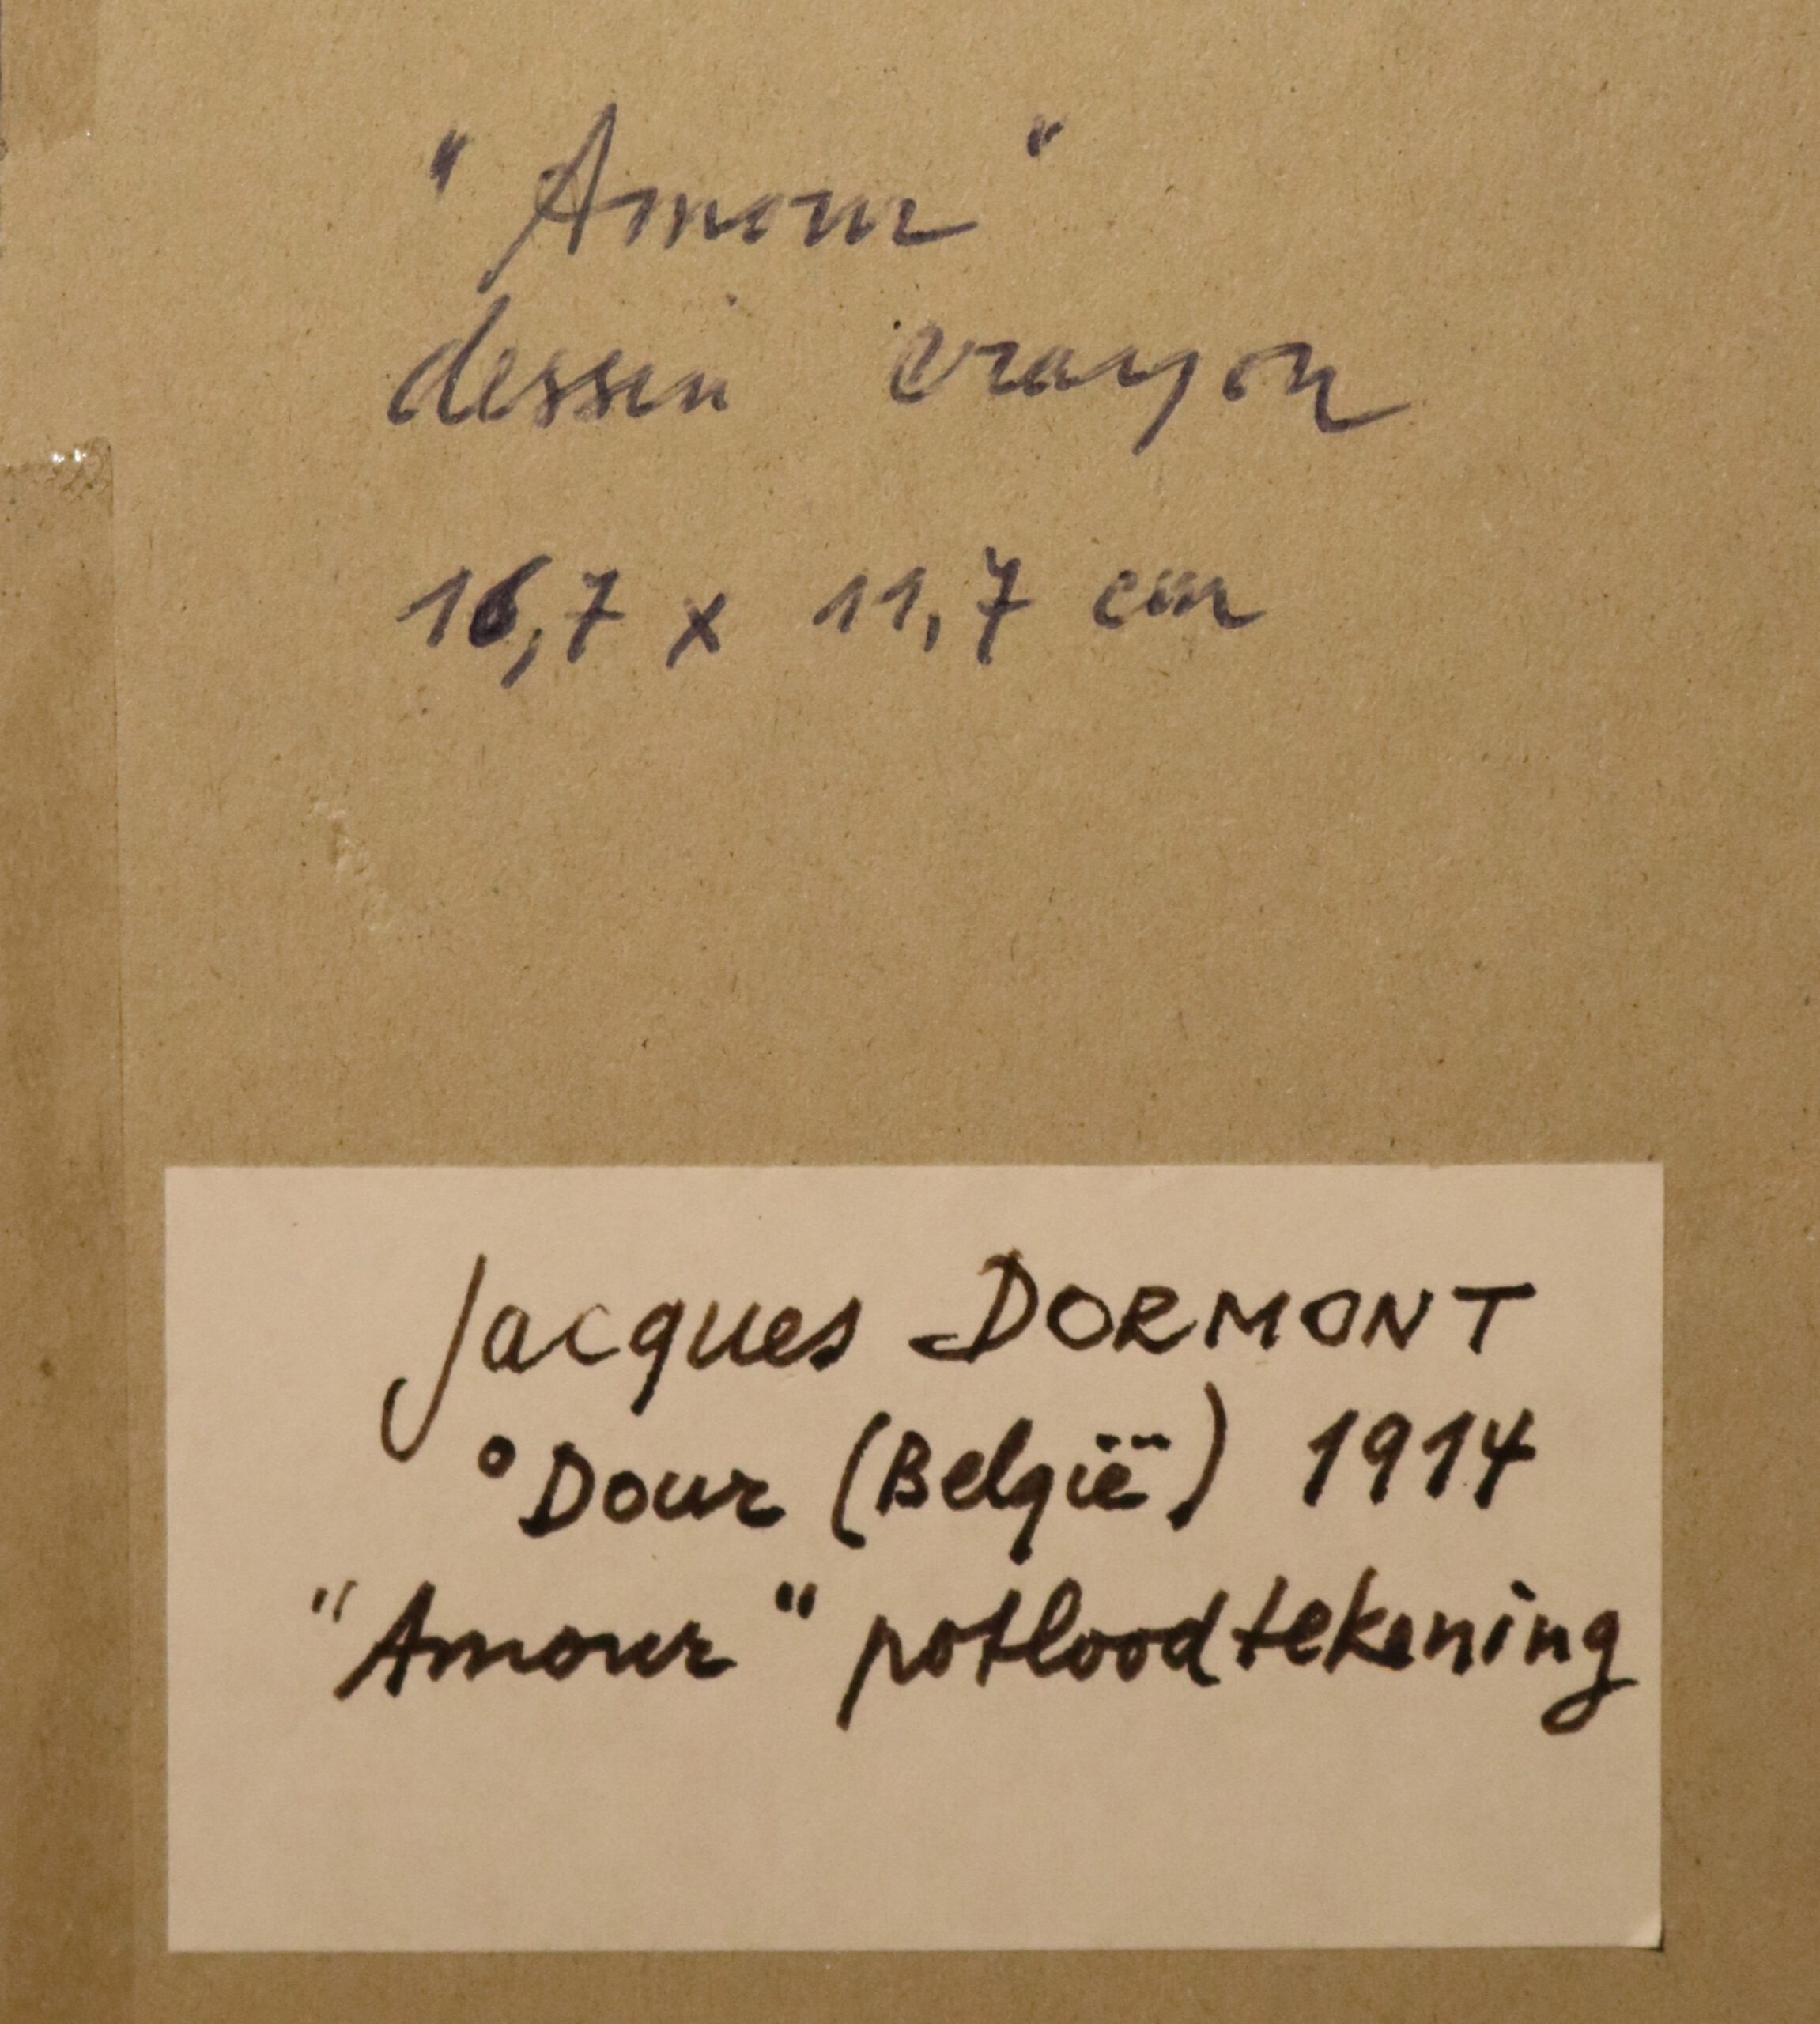 "Amour"
dessin crayon
16,7 x 11,7 cm
Jacques DORMONT
° Dour (België) 1914
"Amour" potloodtekening